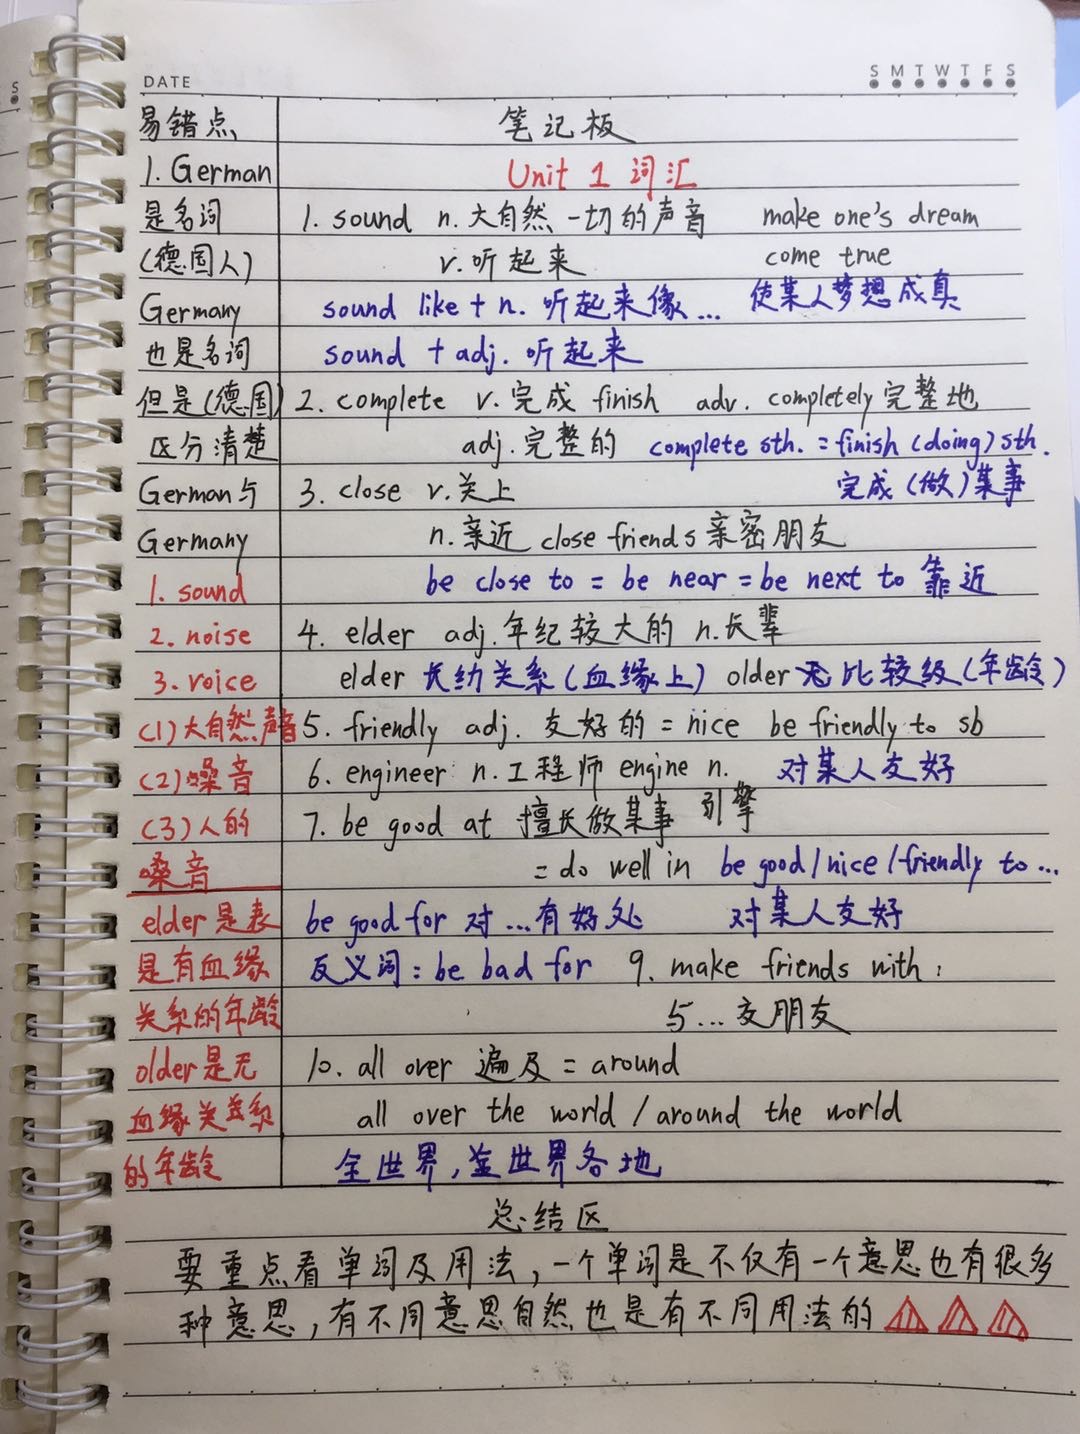 DATE
S M T W T F S
易错点
1. German
是名词
(德国人)
Germany
也是名词
但是(德国)
区分清楚
German与
Germany
1. sound
2. noise
3. voice
(1)大自然声音
(2)噪音
(3)人的
嗓音
elder是表
是有血缘
关系的年龄
older是无
血缘关系
的年龄
笔记板
Unit 1 词汇
1. sound n.大自然一切的声音 make one's dream
v.听起来 come true
sound like + n. 听起来像... 使某人梦想成真
sound + adj. 听起来
2. complete v.完成 finish adv. completely完整地
adj.完整的 complete sth. = finish (doing) sth.
3. close v.关上 完成(做)某事
n.亲近 close friends亲密朋友
be close to = be near = be next to 靠近
4. elder adj.年纪较大的 n.长辈
elder 长幼关系(血缘上) older无 比较级(年龄)
5. friendly adj. 友好的 = nice be friendly to sb
6. engineer n.工程师 engine n. 对某人友好
7. be good at 擅长做某事 引擎
= do well in be good/nice/friendly to ...
be good for 对...有好处 对某人友好
反义词: be bad for 9. make friends with:
与...交朋友
10. all over 遍及 = around
all over the world / around the world
全世界,全世界各地
总结区
要重点看单词及用法,一个单词是不仅有一个意思也有很多
种意思,有不同意思自然也是有不同用法的